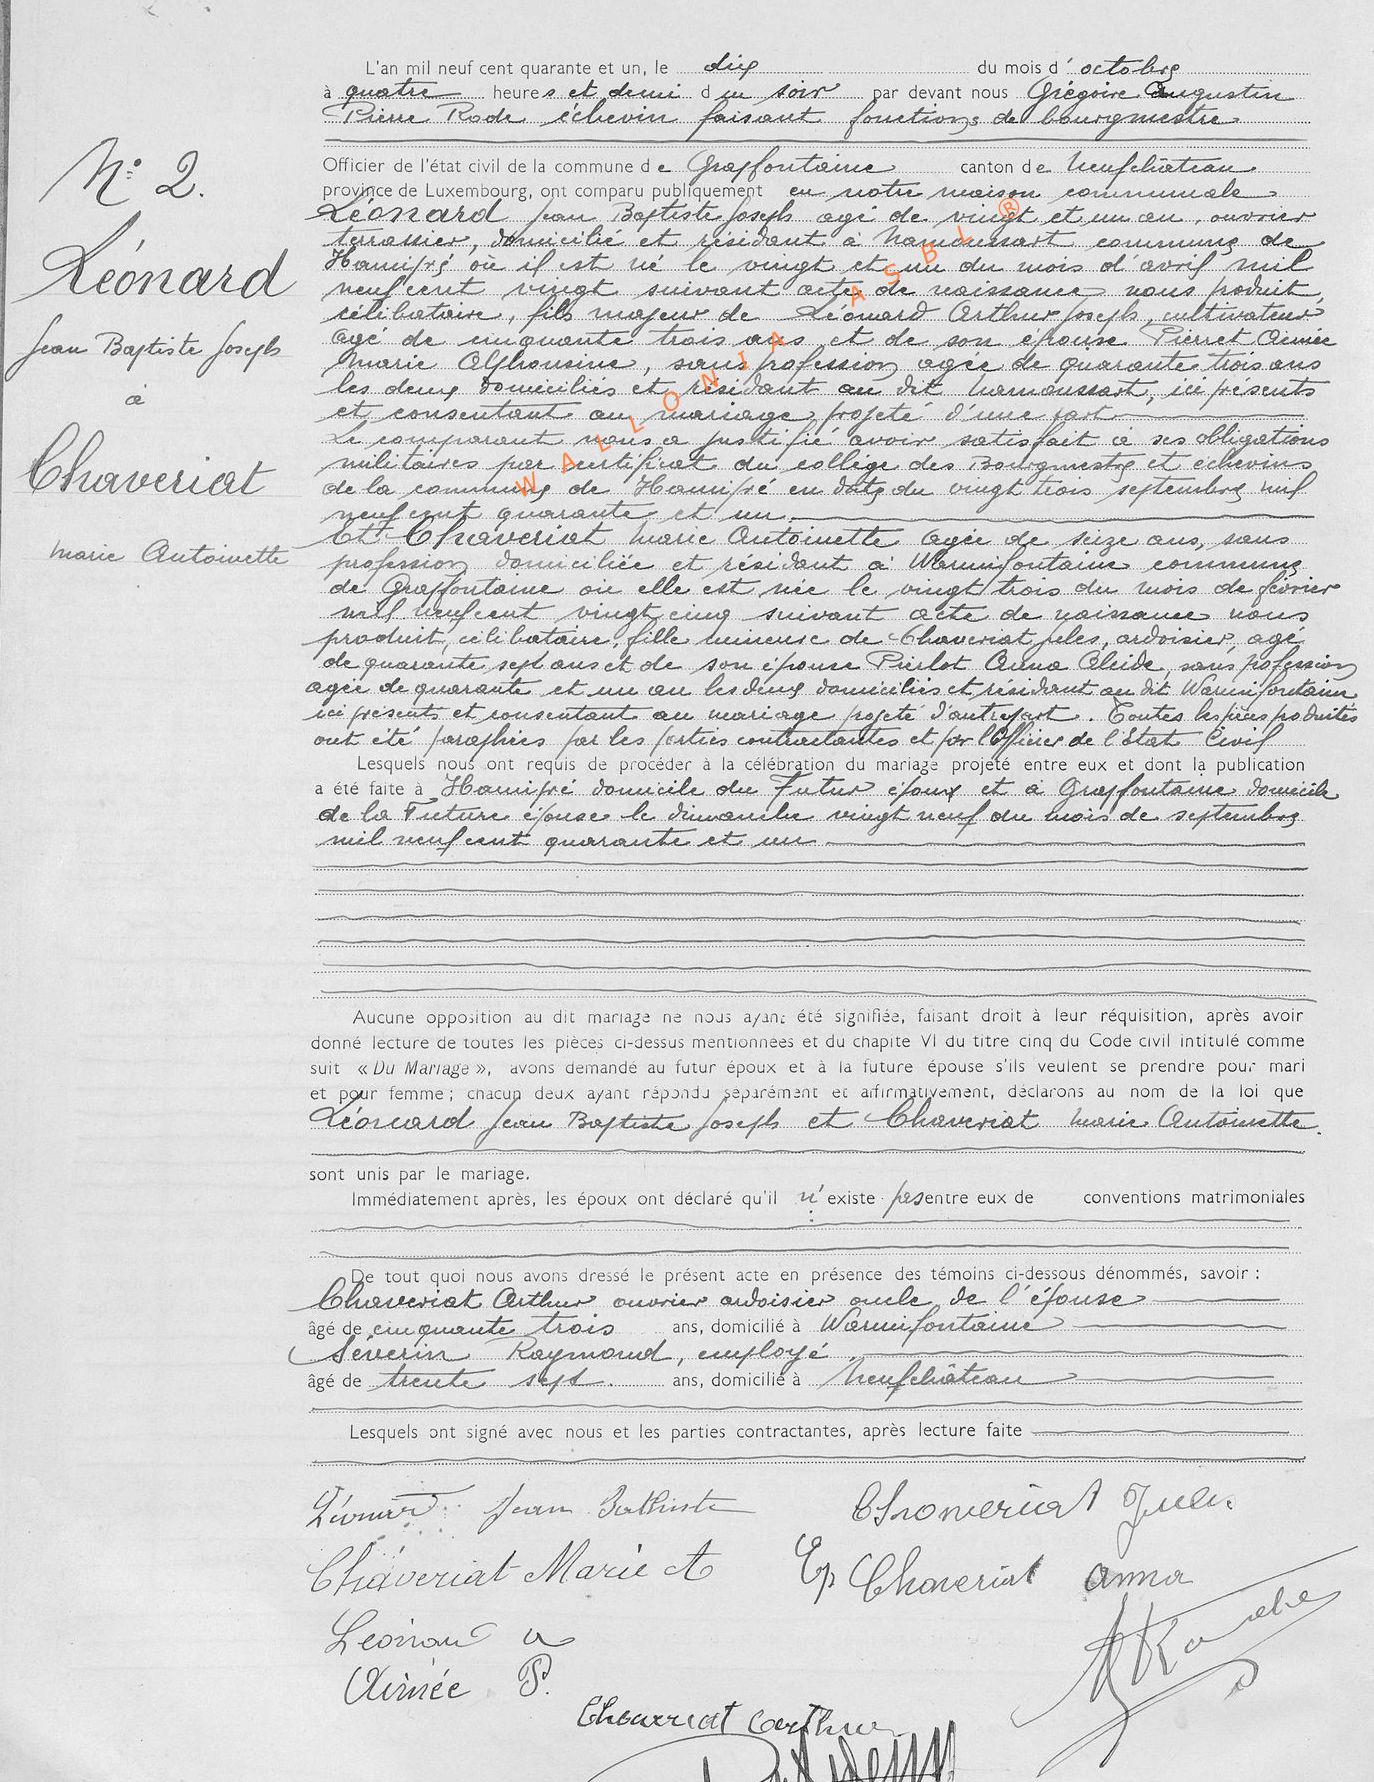 L'an mil neuf cent quarante et un, le dix du mois d'octobre
à quatre heures et demi du soir par devant nous Grégoire Augustin
Pierre Rode échevin faisant fonctions de bourgmestre
Officier de l'état civil de la commune de Grapfontaine canton de Neufchâteau
province de Luxembourg, ont comparu publiquement en notre maison communale
N° 2.
Léonard
Jean Baptiste Joseph
à
Chaveriat
Marie Antoinette
Léonard Jean Baptiste Joseph agé de vingt et un an, ouvrier
terrassier, domicilié et résidant à Namoussart commune de
Hamipré où il est né le vingt et un du mois d'avril mil
neuf cent vingt suivant acte de naissance nous produit,
célibataire, fils majeur de Léonard Arthur Joseph, cultivateur
agé de cinquante trois ans et de son épouse Pierret Aimée
Marie Alphonsine, sans profession agée de quarante trois ans
les deux domiciliés et résidant au dit Namoussart, ici présents
et consentant au mariage projeté d'une part
Le comparant nous a justifié avoir satisfait à ses obligations
militaires par certificat du collège des Bourgmestre et échevins
de la commune de Hamipré en date du vingt trois septembre mil
neuf cent quarante et un.
Et Chaveriat Marie Antoinette agée de seize ans, sans
profession domiciliée et résidant à Warmifontaine commune
de Grapfontaine où elle est née le vingt trois du mois de février
mil neuf cent vingt cinq suivant acte de naissance nous
produit, célibataire, fille mineure de Chaveriat Jules, ardoisier, agé
de quarante sept ans et de son épouse Pierlot Anna Aleide, sans profession
agée de quarante et un an les deux domiciliés et résidant au dit Warmifontaine
ici présents et consentant au mariage projeté d'autre part. Toutes les pièces produites
ont été paraphées par les parties contractantes et par l'Officier de l'Etat Civil
Lesquels nous ont requis de procéder à la célébration du mariage projeté entre eux et dont la publication
a été faite à Hamipré domicile du Futur époux et à Grapfontaine domicile
de la Future épouse le dimanche vingt neuf du mois de septembre
mil neuf cent quarante et un
Aucune opposition au dit mariage ne nous ayant été signifiée, faisant droit à leur réquisition, après avoir
donné lecture de toutes les pièces ci-dessus mentionnées et du chapitre VI du titre cinq du Code civil intitulé comme
suit « Du Mariage », avons demandé au futur époux et à la future épouse s'ils veulent se prendre pour mari
et pour femme; chacun deux ayant répondu séparément et affirmativement, déclarons au nom de la loi que
Léonard Jean Baptiste Joseph et Chaveriat Marie Antoinette.
sont unis par le mariage.
Immédiatement après, les époux ont déclaré qu'il n'existe pas entre eux de conventions matrimoniales
De tout quoi nous avons dressé le présent acte en présence des témoins ci-dessous dénommés, savoir :
Chaveriat Arthur ouvrier ardoisier oncle de l'épouse
âgé de cinquante trois ans, domicilié à Warmifontaine
Séverin Raymond, employé
âgé de trente sept. ans, domicilié à Neufchâteau
Lesquels ont signé avec nous et les parties contractantes, après lecture faite
Léonard Jean Bathiste Chaveriat Jules
Chaveriat Marie A Ep Chaveriat Anna
Léonard A
Aimée P.
Chaveriat Arthur
WALLONIA ASBL ®